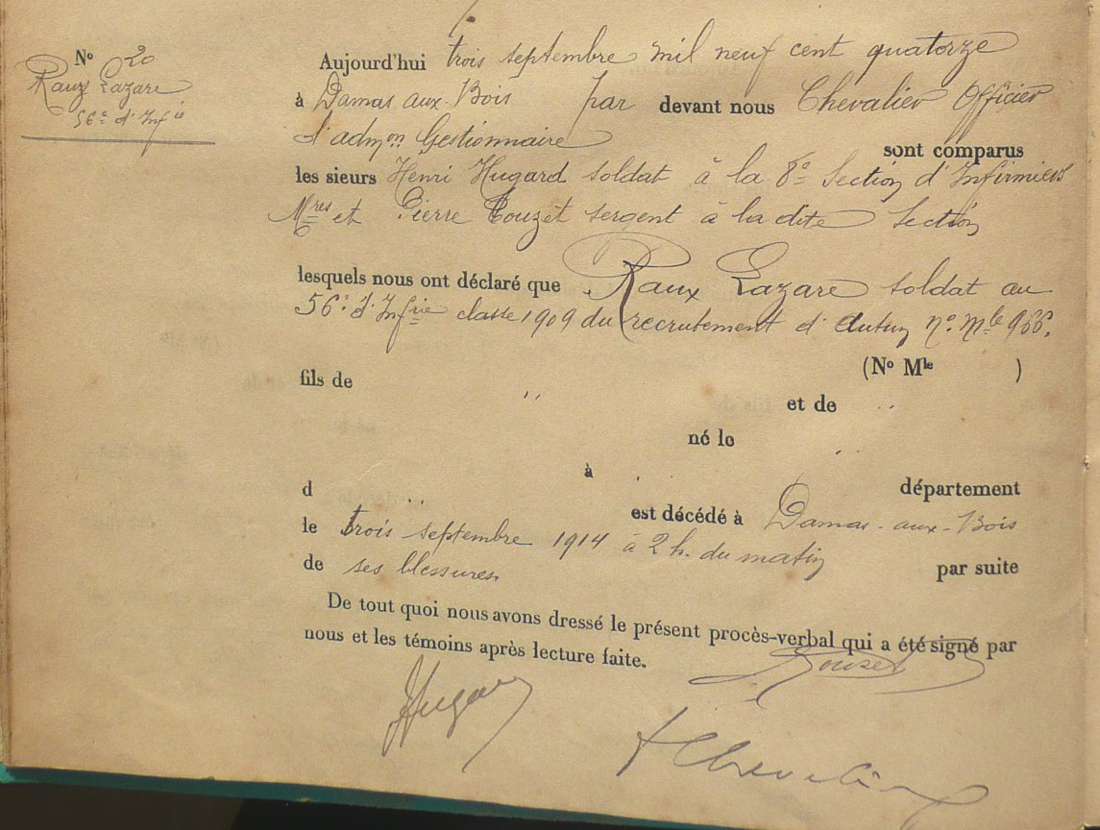 N° 20
Raux Lazare
56e d'Infie
Aujourd'hui trois septembre mil neuf cent quatorze
à Damas aux Bois par devant nous Chevalier Officier
d'admon Gestionnaire sont comparus
les sieurs Henri Hugard soldat à la 8e Section d'Infirmiers
Mres et Pierre Touzet sergent à la dite Section
lesquels nous ont déclaré que Raux Lazare soldat au
56e d'Infie classe 1909 du recrutement d'Autun n° mle 966.
(N° Mle )
fils de "
et de "
né le "
à " département
d " est décédé à Damas-aux-Bois
le trois septembre 1914 à 2 h. du matin
de ses blessures par suite
De tout quoi nous avons dressé le présent procès-verbal qui a été signé par
nous et les témoins après lecture faite.
Touzet
Hugard
Chevalier